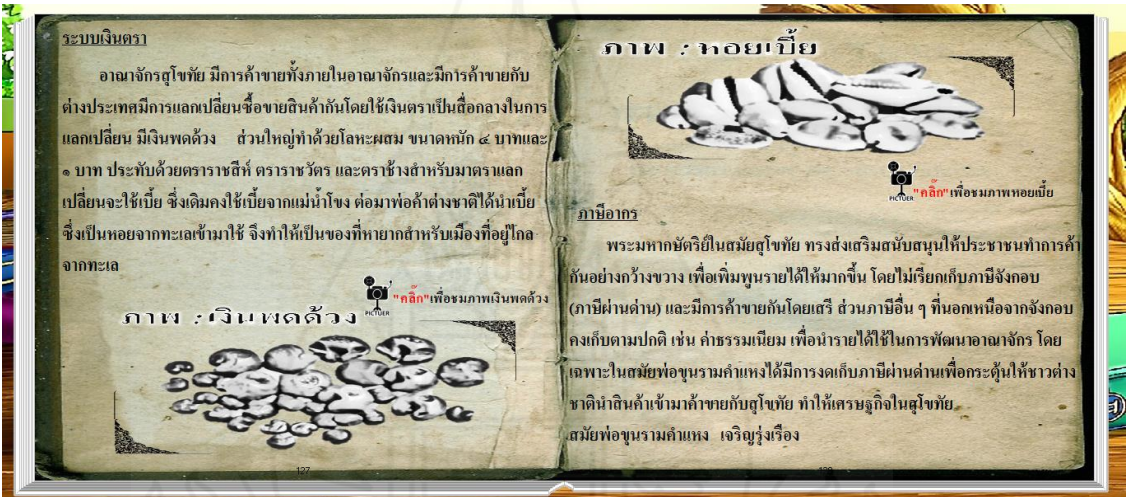 ระบบเงินตรา
อาณาจักรสุโขทัย มีการค้าขายทั้งภายในอาณาจักรและมีการค้าขายกับ
ต่างประเทศมีการแลกเปลี่ยนซื้อขายสินค้ากันโดยใช้เงินตราเป็นสื่อกลางในการ
แลกเปลี่ยน มีเงินพดด้วง ส่วนใหญ่ทำด้วยโลหะผสม ขนาดหนัก ๔ บาทและ
๑ บาท ประทับด้วยตราราชสีห์ ตราราชวัตร และตราช้างสำหรับมาตราแลก
เปลี่ยนจะใช้เบี้ย ซึ่งเดิมคงใช้เบี้ยจากแม่น้ำโขง ต่อมาพ่อค้าต่างชาติได้นำเบี้ย
ซึ่งเป็นหอยจากทะเลเข้ามาใช้ จึงทำให้เป็นของที่หายากสำหรับเมืองที่อยู่ไกล
จากทะเล
PICTUER "คลิ๊ก"เพื่อชมภาพเงินพดด้วง
ภาพ : เงินพดด้วง
127
ภาพ : หอยเบี้ย
PICTUER "คลิ๊ก"เพื่อชมภาพหอยเบี้ย
ภาษีอากร
พระมหากษัตริย์ในสมัยสุโขทัย ทรงส่งเสริมสนับสนุนให้ประชาชนทำการค้า
กันอย่างกว้างขวาง เพื่อเพิ่มพูนรายได้ให้มากขึ้น โดยไม่เรียกเก็บภาษีจังกอบ
(ภาษีผ่านด่าน) และมีการค้าขายกันโดยเสรี ส่วนภาษีอื่น ๆ ที่นอกเหนือจากจังกอบ
คงเก็บตามปกติ เช่น ค่าธรรมเนียม เพื่อนำรายได้ใช้ในการพัฒนาอาณาจักร โดย
เฉพาะในสมัยพ่อขุนรามคำแหงได้มีการงดเก็บภาษีผ่านด่านเพื่อกระตุ้นให้ชาวต่าง
ชาตินำสินค้าเข้ามาค้าขายกับสุโขทัย ทำให้เศรษฐกิจในสุโขทัย
สมัยพ่อขุนรามคำแหง เจริญรุ่งเรือง